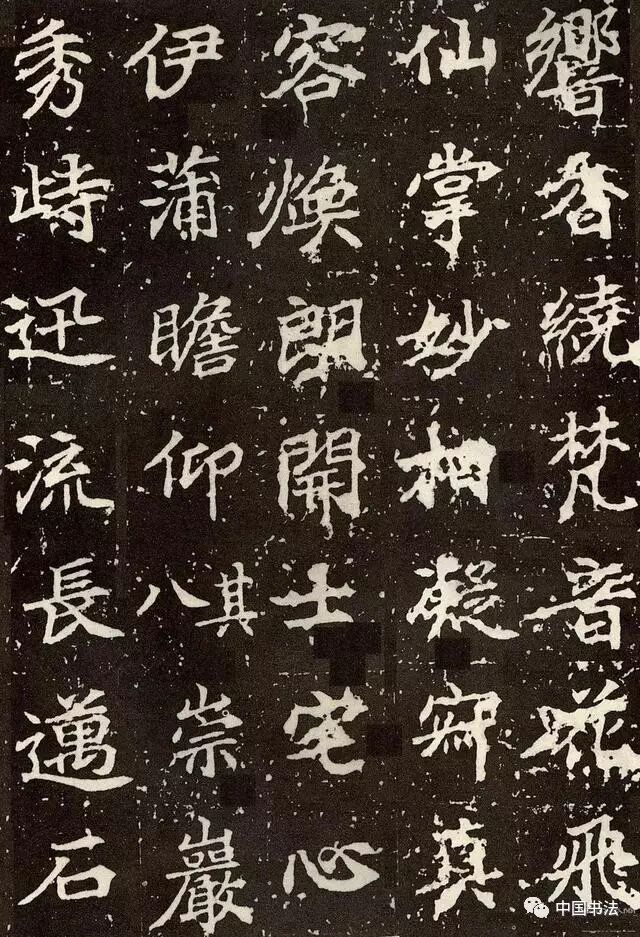 響香繞梵音花飛
仙掌妙相凝寂真
容煥朗開士宅心
伊蒲瞻仰其八崇巖
秀峙迅流長邁石
中国书法